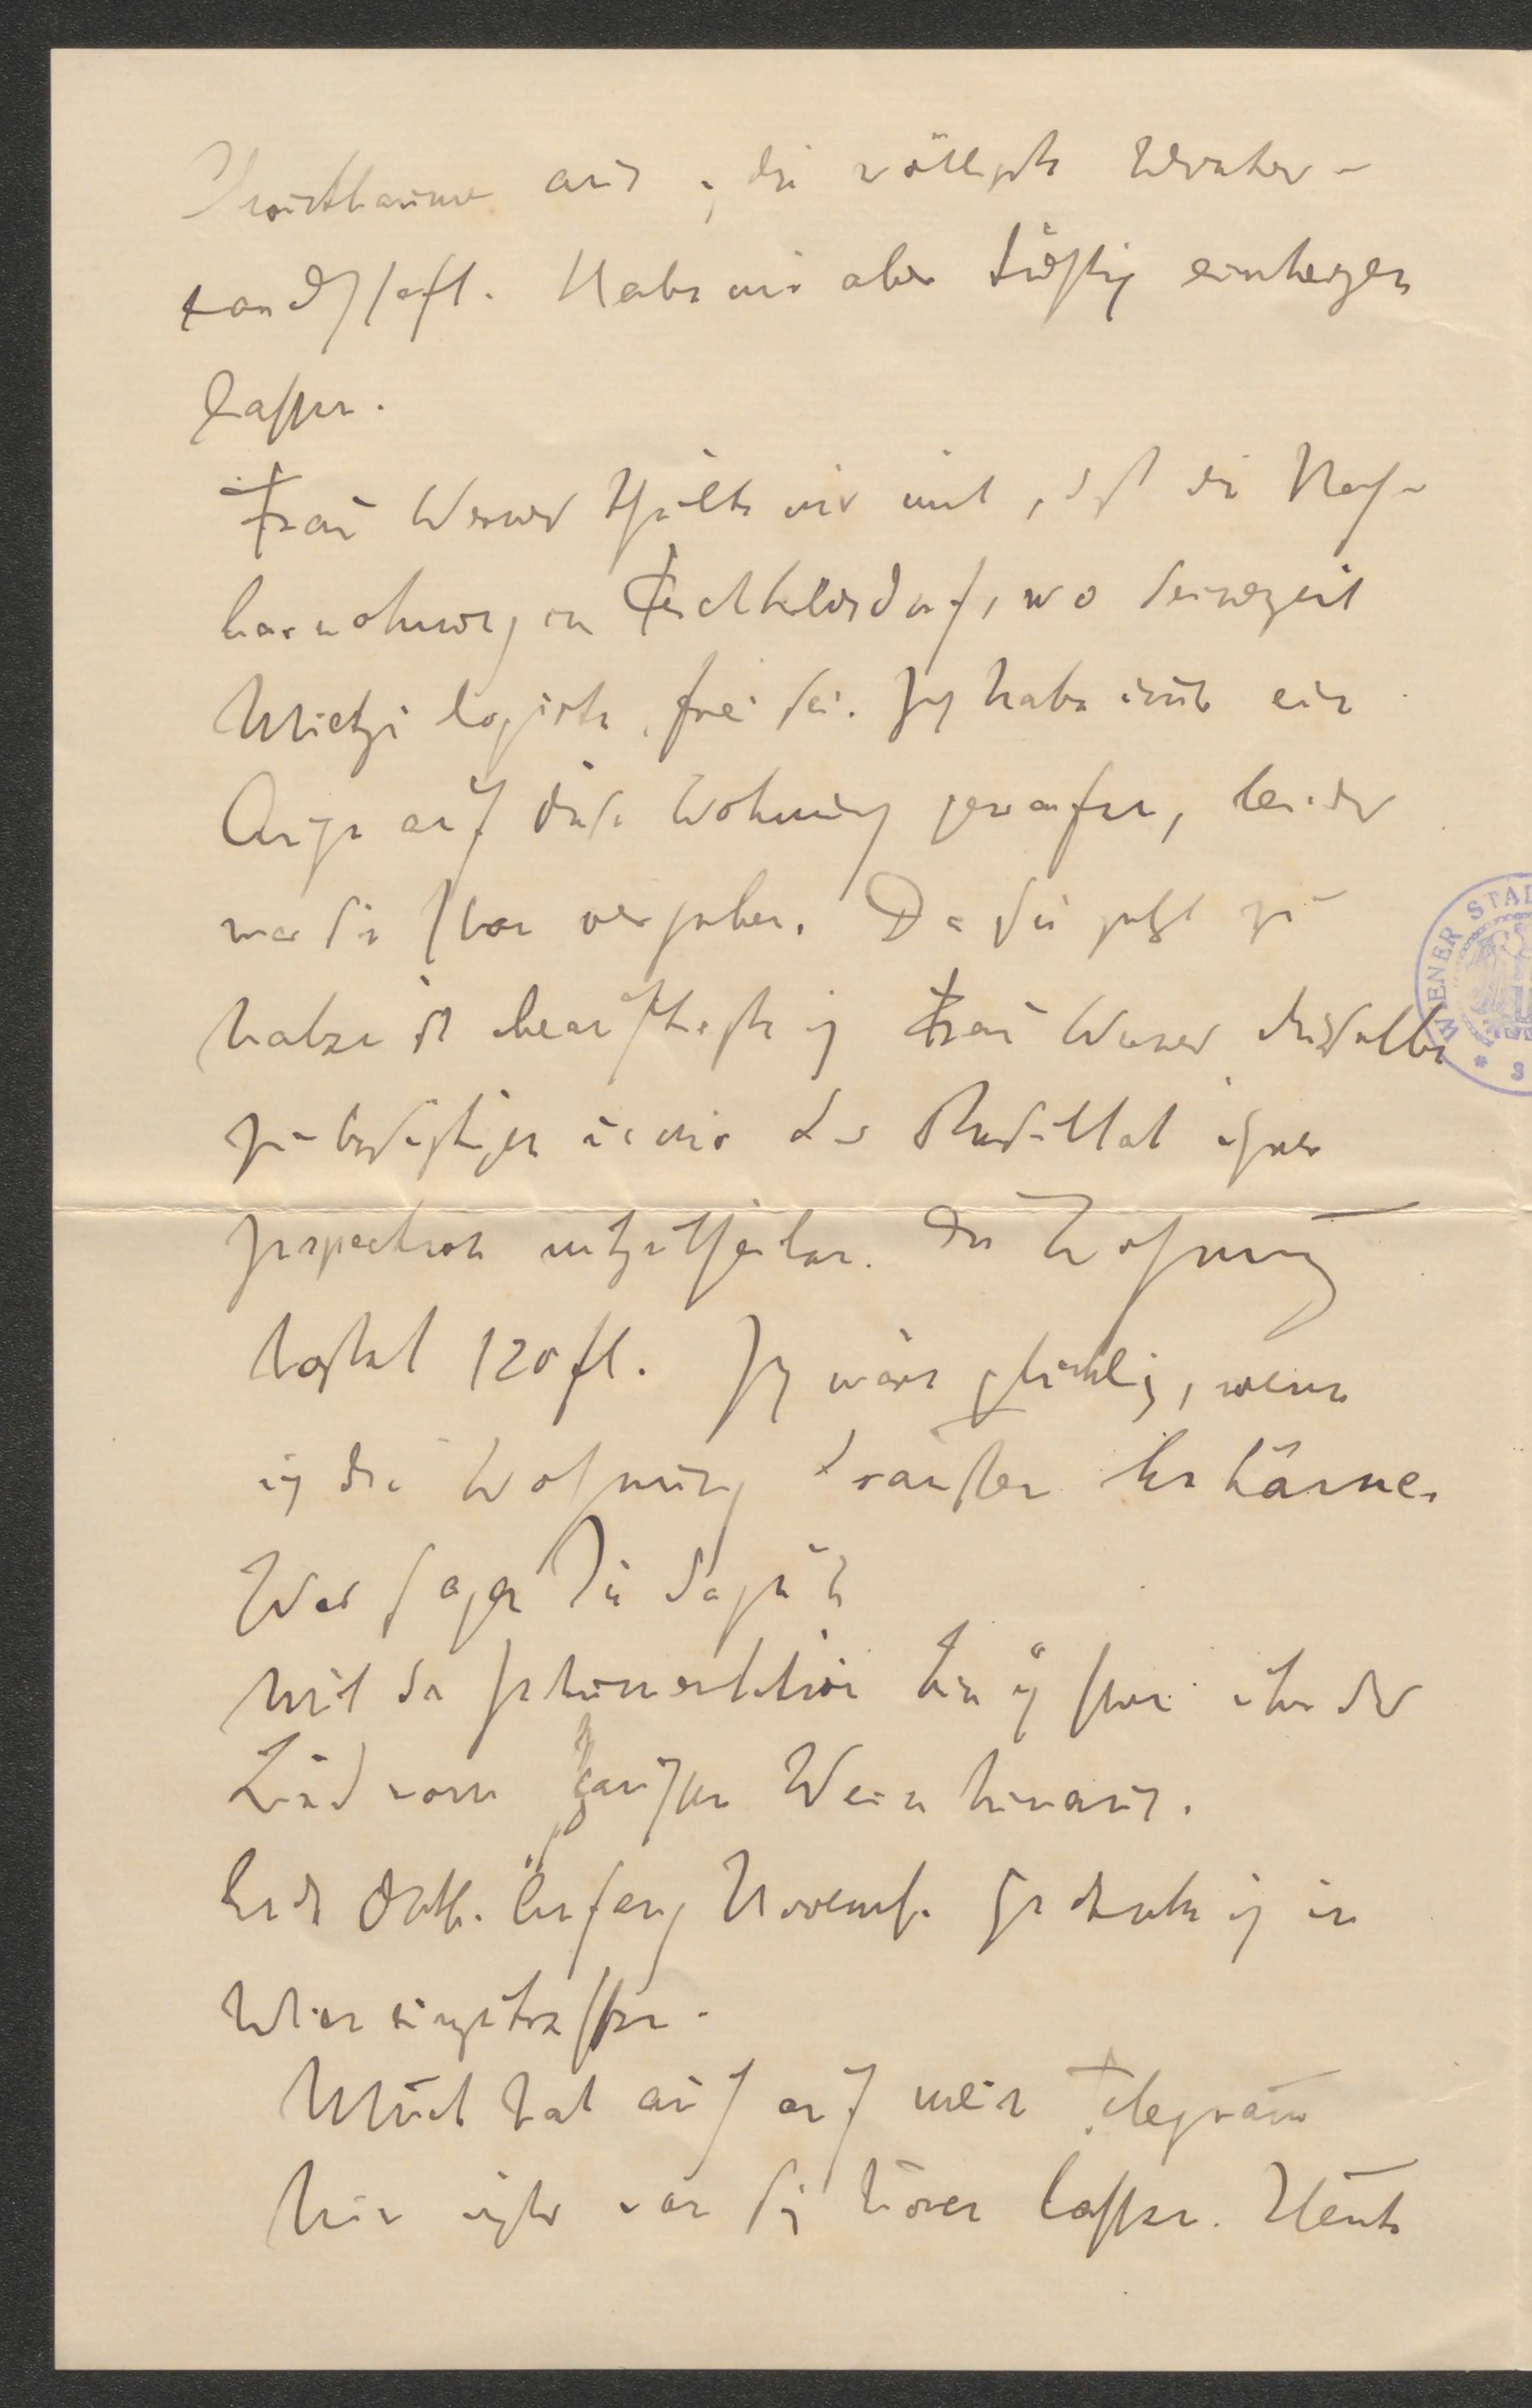 aus, die völligste Winter-
landschaft. Habe mir aber tüchtig einheizen
lassen.
Frau Werner theilte mir mit, daß die Nach-
barwohnung in Perchtoldsdorf, wo seinerzeit
Mietzi logirte, frei sei. Ich habe immer ein
Auge auf diese Wohnung geworfen, leider
war sie schon vergeben. Da sie jetzt zu
haben ist beauftragte ich Frau Werner dieselbe
zu besichtigen u. mir das Resultat ihrer
Inspection mitzutheilen. Die Wohnung
kostet 120 fl. Ich wäre glücklich, wenn
ich die Wohnung draußen bekäme.
Was sagen Sie dazu?
Mit der Instrumentation bin ich schon über das
Lied vom Wein hinaus.
Ende Octb. Anfang Novemb. gedenke ich in
Wien einzutreffen.
hat auch auf mein Telegramm
hin nichts von sich hören lassen. Heute
WIENER STAD